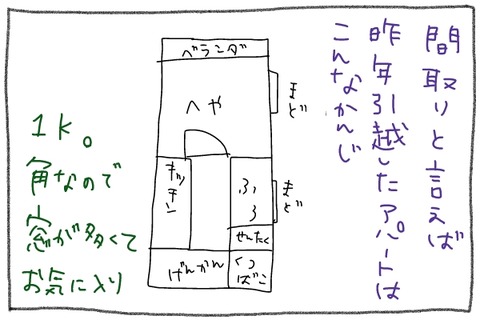 間取りと言えば
昨年引越したアパートは
こんなかんじ
ベランダ
へや
まど
キッチン
ふろ
まど
せんたく
げんかん
くつばこ
1K。
角なので
窓が多くて
お気に入り